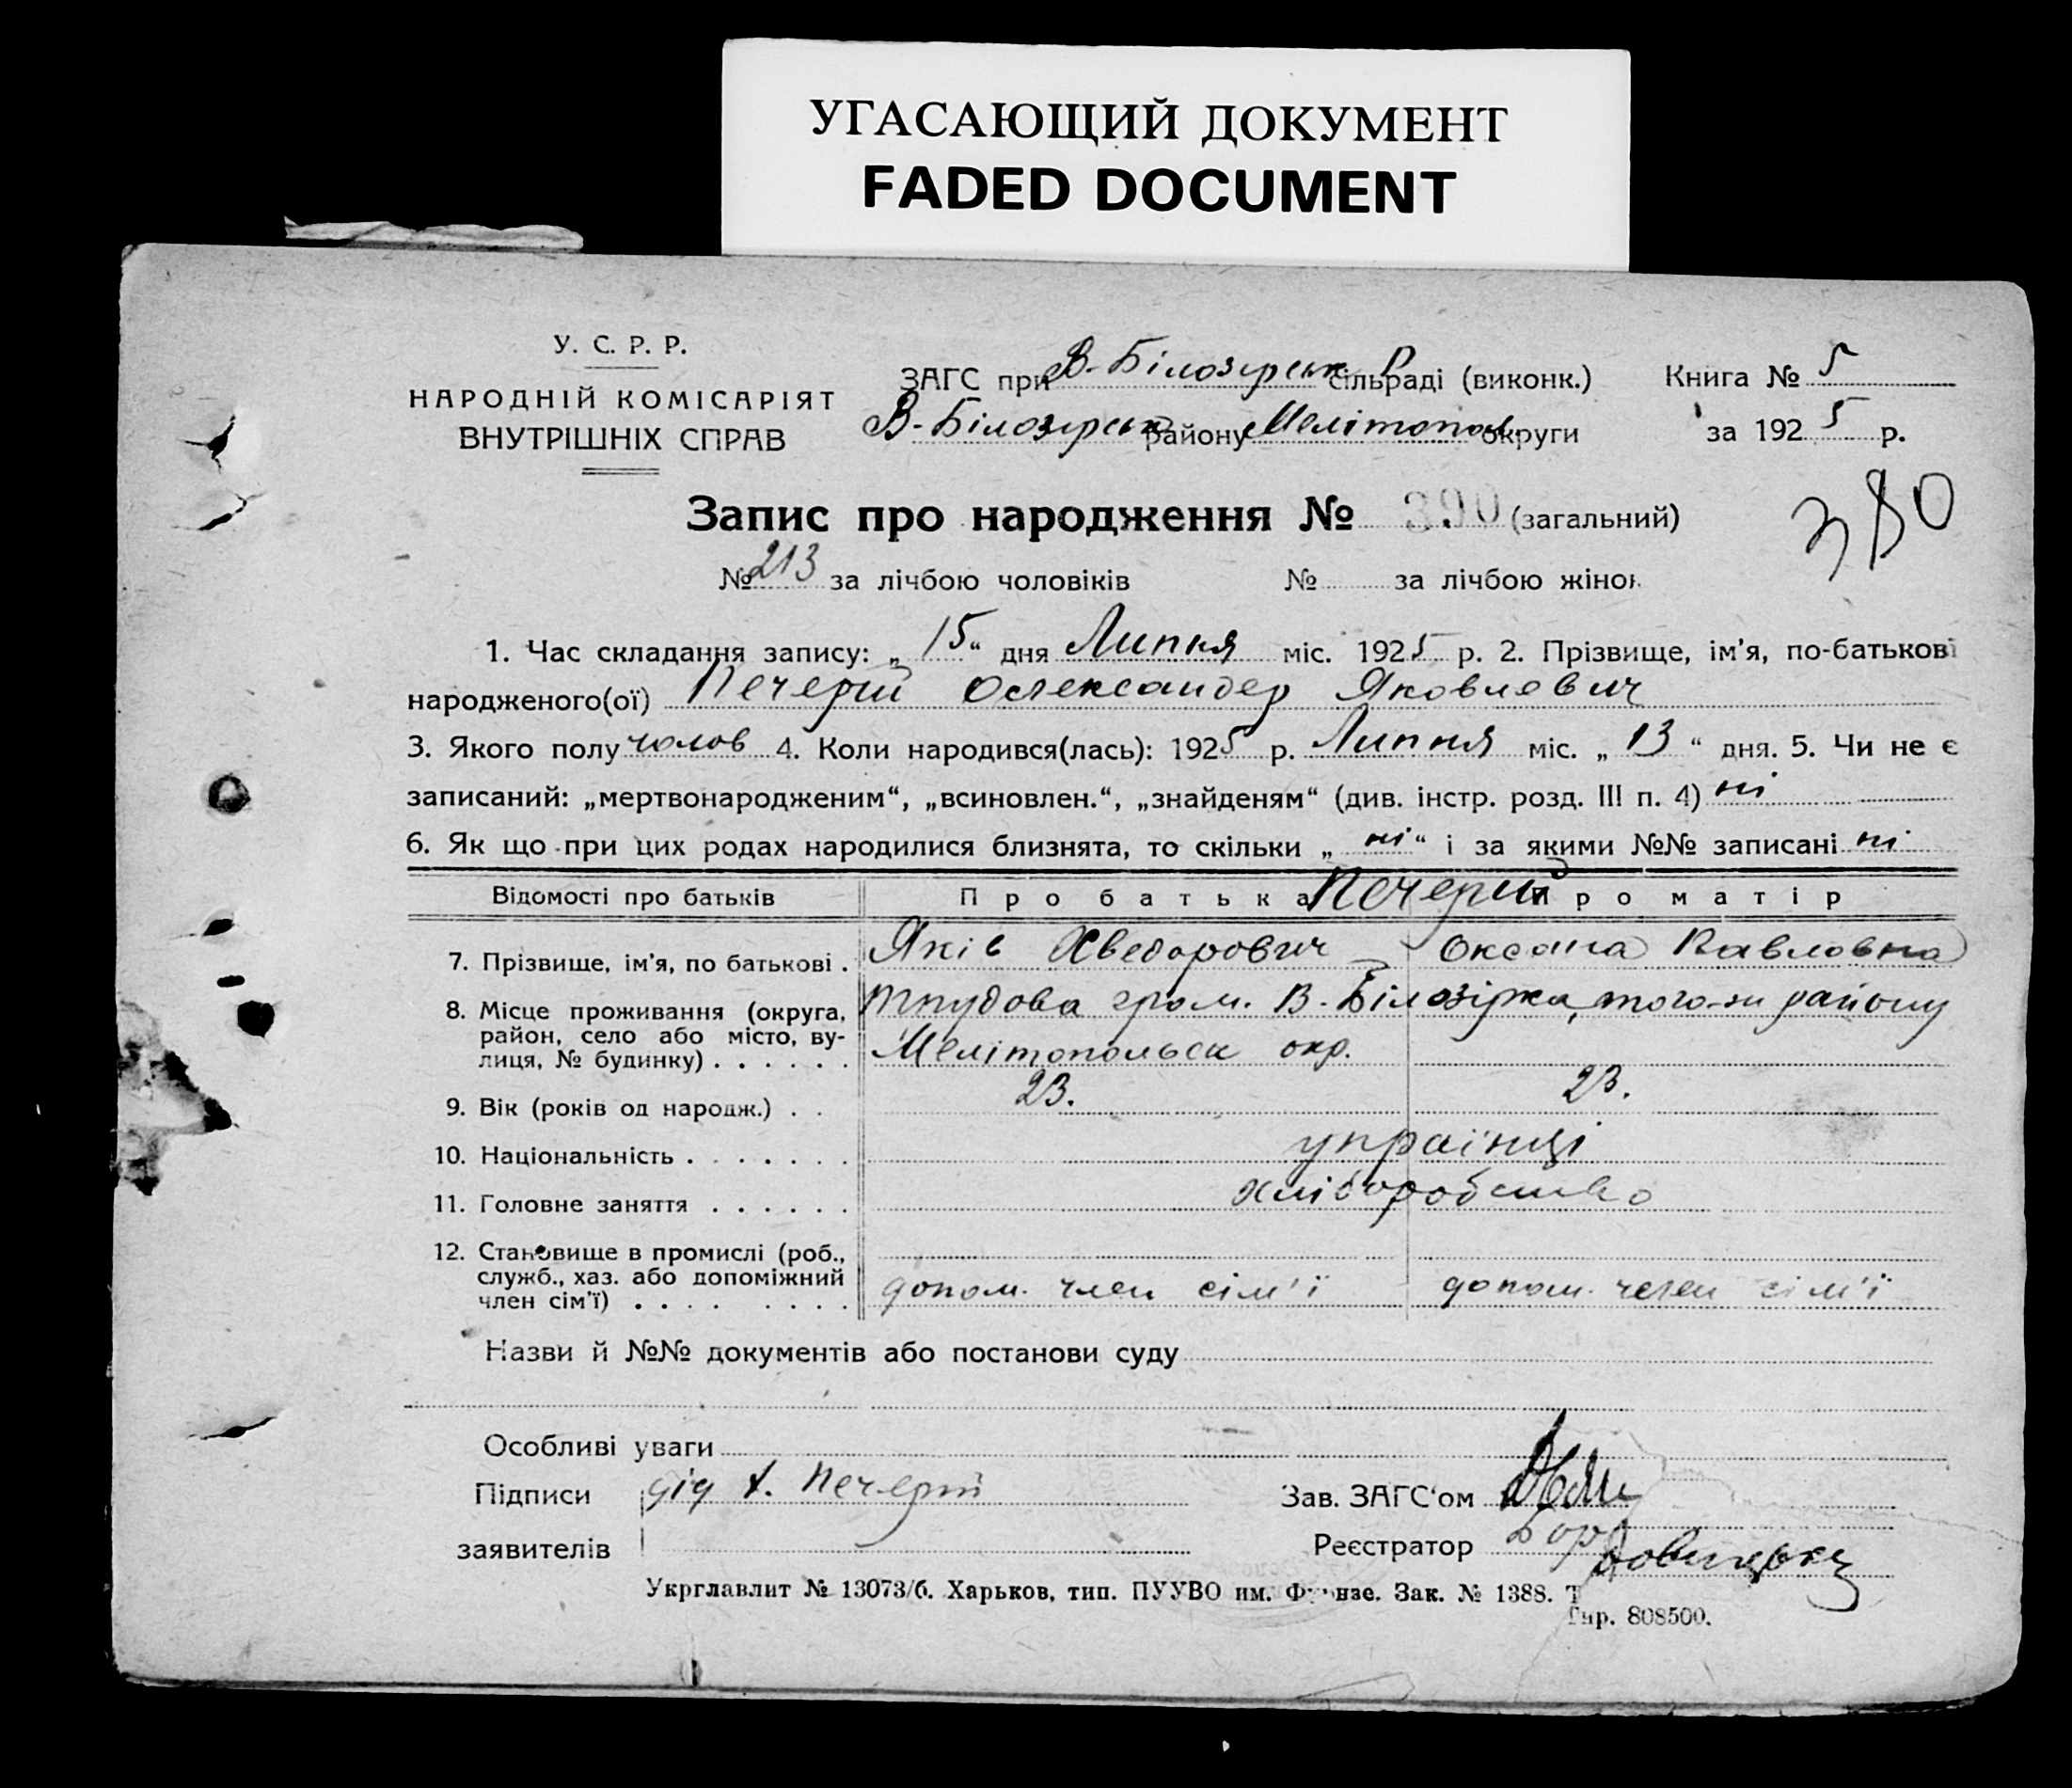 УГАСАЮЩИЙ ДОКУМЕНТ
FADED DOCUMENT
У. С. Р. Р.
НАРОДНІЙ КОМІСАРІЯТ
ВНУТРІШНІХ СПРАВ
ЗАГС при В-Білозірськ Р сільраді (виконк.)
В-Білозірськ району Мелітопол округи
Книга № 5
за 1925 р.
Запис про народження № 390 (загальний)
380
№ 213 за лічбою чоловіків № за лічбою жінок
1. Час складання запису: „15“ дня Липня міс. 1925 р. 2. Прізвище, ім'я, по-батькові
народженого(ої) Печерій Олександер Яковлевич
3. Якого полу чолов 4. Коли народився(лась): 1925 р. Липня міс. „13“ дня. 5. Чи не є
записаний: „мертвонародженим“, „всиновлен.“, „знайденям“ (див. інстр. розд. III п. 4) ні
6. Як що при цих родах народилися близнята, то скільки „ні“ і за якими №№ записані ні
Відомості про батьків Про батька Печерій Про матір
7. Прізвище, ім'я, по батькові . Яків Хведорович Оксана Павловна
8. Місце проживання (округа, район, село або місто, вулиця, № будинку) . . . . . . Трудова гром. В-Білозірка, того-ж району
Мелітопольск окр.
9. Вік (років од народж.) . . 23. 23.
10. Національність . . . . . . . українці
11. Головне заняття . . . . . . хліборобство
12. Становище в промислі (роб., служб., хаз. або допоміжний член сім'ї) . . . . . . . . допом. член сім'ї допом. член сім'ї
Назви й №№ документів або постанови суду
Особливі уваги
Підписи дід Х. Печерій
заявителів
Зав. ЗАГС'ом
Реєстратор
Укрглавлит № 13073/б. Харьков, тип. ПУУВО им. Фрунзе. Зак. № 1388. Т
Тир. 808500.